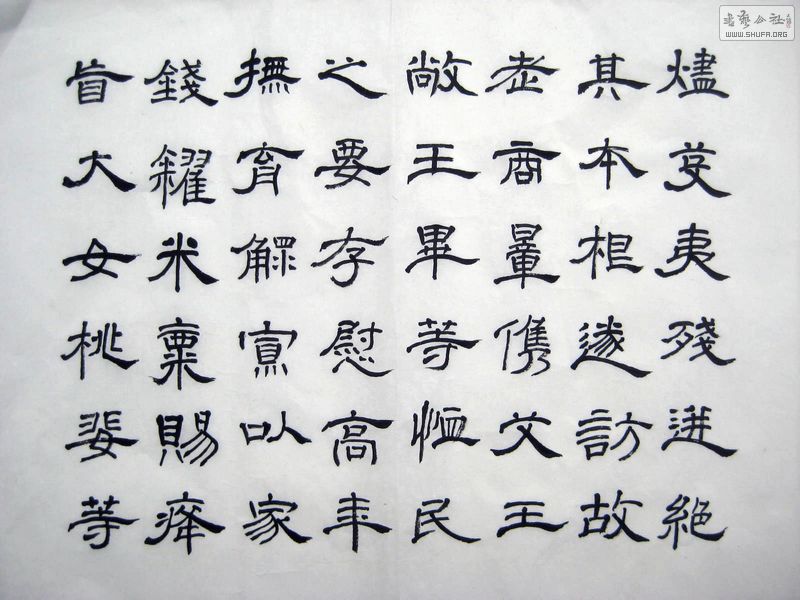 書藝公社
WWW.SHUFA.ORG
燼芟夷殘迸絕
其本根遂訪故
老商量儁艾王
敞王畢等恤民
之要存慰高年
撫育鰥寡以家
錢糴米粟賜癃
盲大女桃婓等